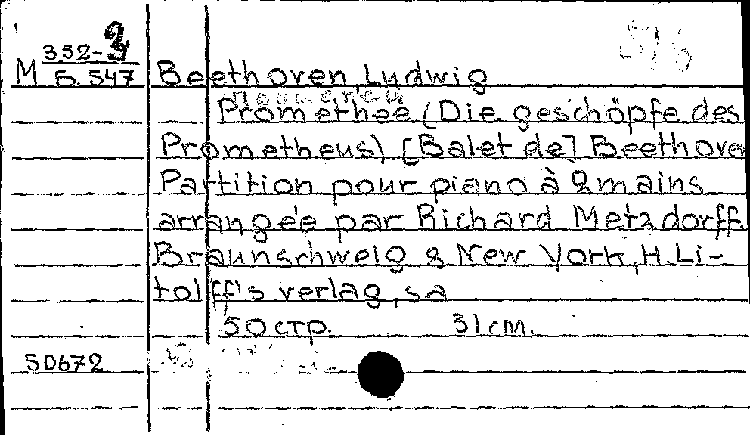 352-3
М Б. 547 Beethoven Ludwig
Promethee (Die geschöpfe des
Prometheus) [Balet de] Beethove
Partition pour piano à 2 mains
arrangée par Richard Metzdorff
Braunschweig & New York, H. Li-
tolff's verlag, sa
50 стр. 31 cm.
50672